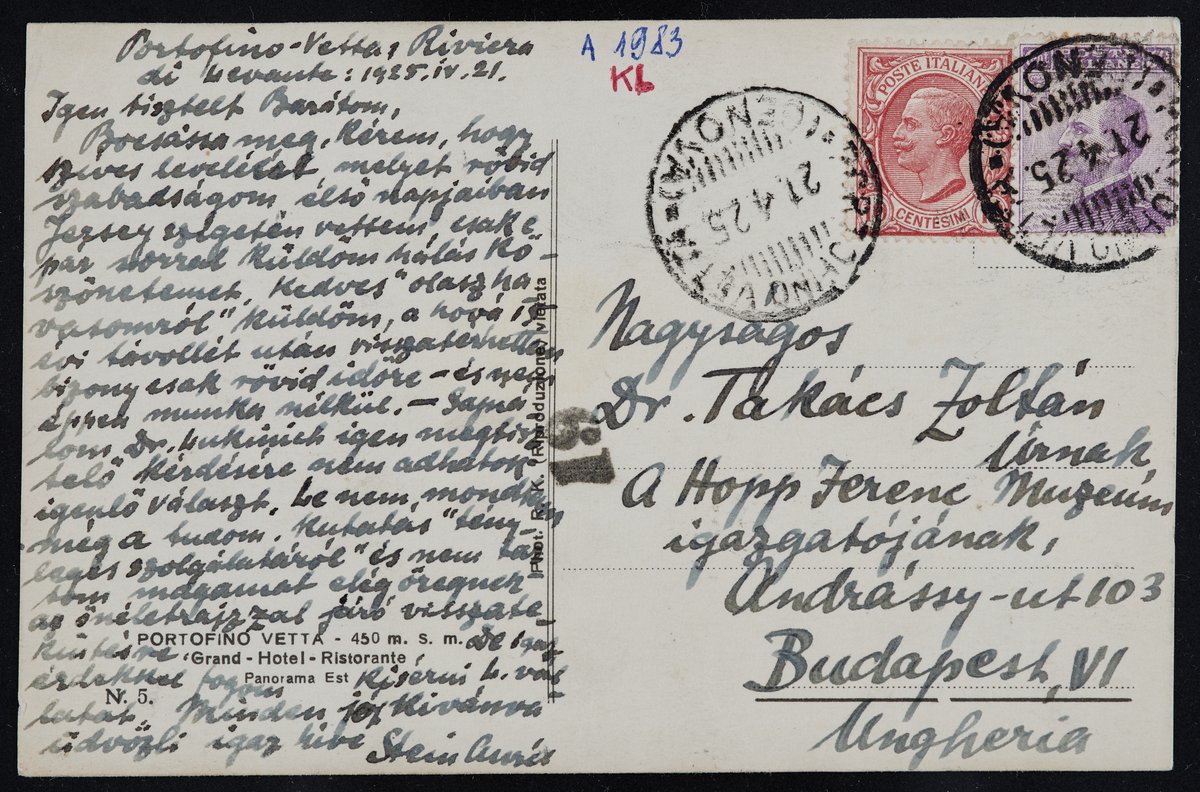 Portofino-Vetta, Riviera
di Levante: 1925.IV.21.
Igen tisztelt Barátom,
Bocsássa meg, kérem, hogy
szives levelét melyet rövid
szabadságom első napjaiban
Jersey szigetén vettem, csak e
pár sorral küldöm hálás kö-
szönetemet. Kedves "olasz ha-
vasomról" küldöm, a hová
évi távollét után visszatérhettem
bizony csak rövid időre – és nem
éppen munka nélkül. – Sajná-
lom Dr. Lukinich igen megtisz-
telő kérdésére nem adhatok
igenlő választ. Le nem mondtam
még a tudom. kutatás "tény-
leges szolgálatáról" és nem tar-
tom magamat elég öregnek
az önéletrajzzal járó visszate-
kintésre. De igaz
érdekkel fogom kisérni
latát. Minden jót kivánva
üdvözli igaz hive Stein Aurél
PORTOFINO VETTA - 450 m. s. m.
Grand - Hotel - Ristorante
Panorama Est
N. 5.
(Phot. R. K. (Riproduzione) vietata
A 1983
KL
POSTE ITALIANE
CENTESIMI
21.4.25.
(GENOVA)
21.4.25.
Nagyságos
Dr. Takács Zoltán
Úrnak,
A Hopp Ferenc Muzeúm
igazgatójának,
Andrássy-ut 103
Budapest, VI
Ungheria